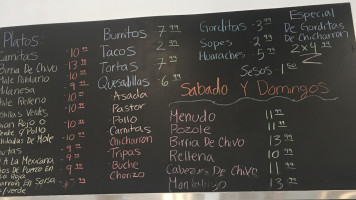 Platos
Carnitas 10.99
Birria De Chivo 13.99
Mole Poblano 10.99
Milanesa 10
Chile Relleno 10
Rojo O 10
de Mole 10
A La Mexicana 9
De Puerco En
En Salsa 7.99
Verde
Burritos 7.99
Tacos 2.99
Tortas 7.99
Quesadillas 6.99
Asada
Pastor
Pollo
Carnitas
Chicharron
Tripas
Buche
Chorizo
Gorditas 3.99
Sopes 2.99
Huaraches 5.99
Sesos 1.50
Especial
De Gorditas
De Chicharron
2x4.99
Sabado Y Domingos
Menudo 11.99
Pozole 11.99
Birria De Chivo 13.99
Rellena 10.99
Cabeza De Chivo 11.99
13.99